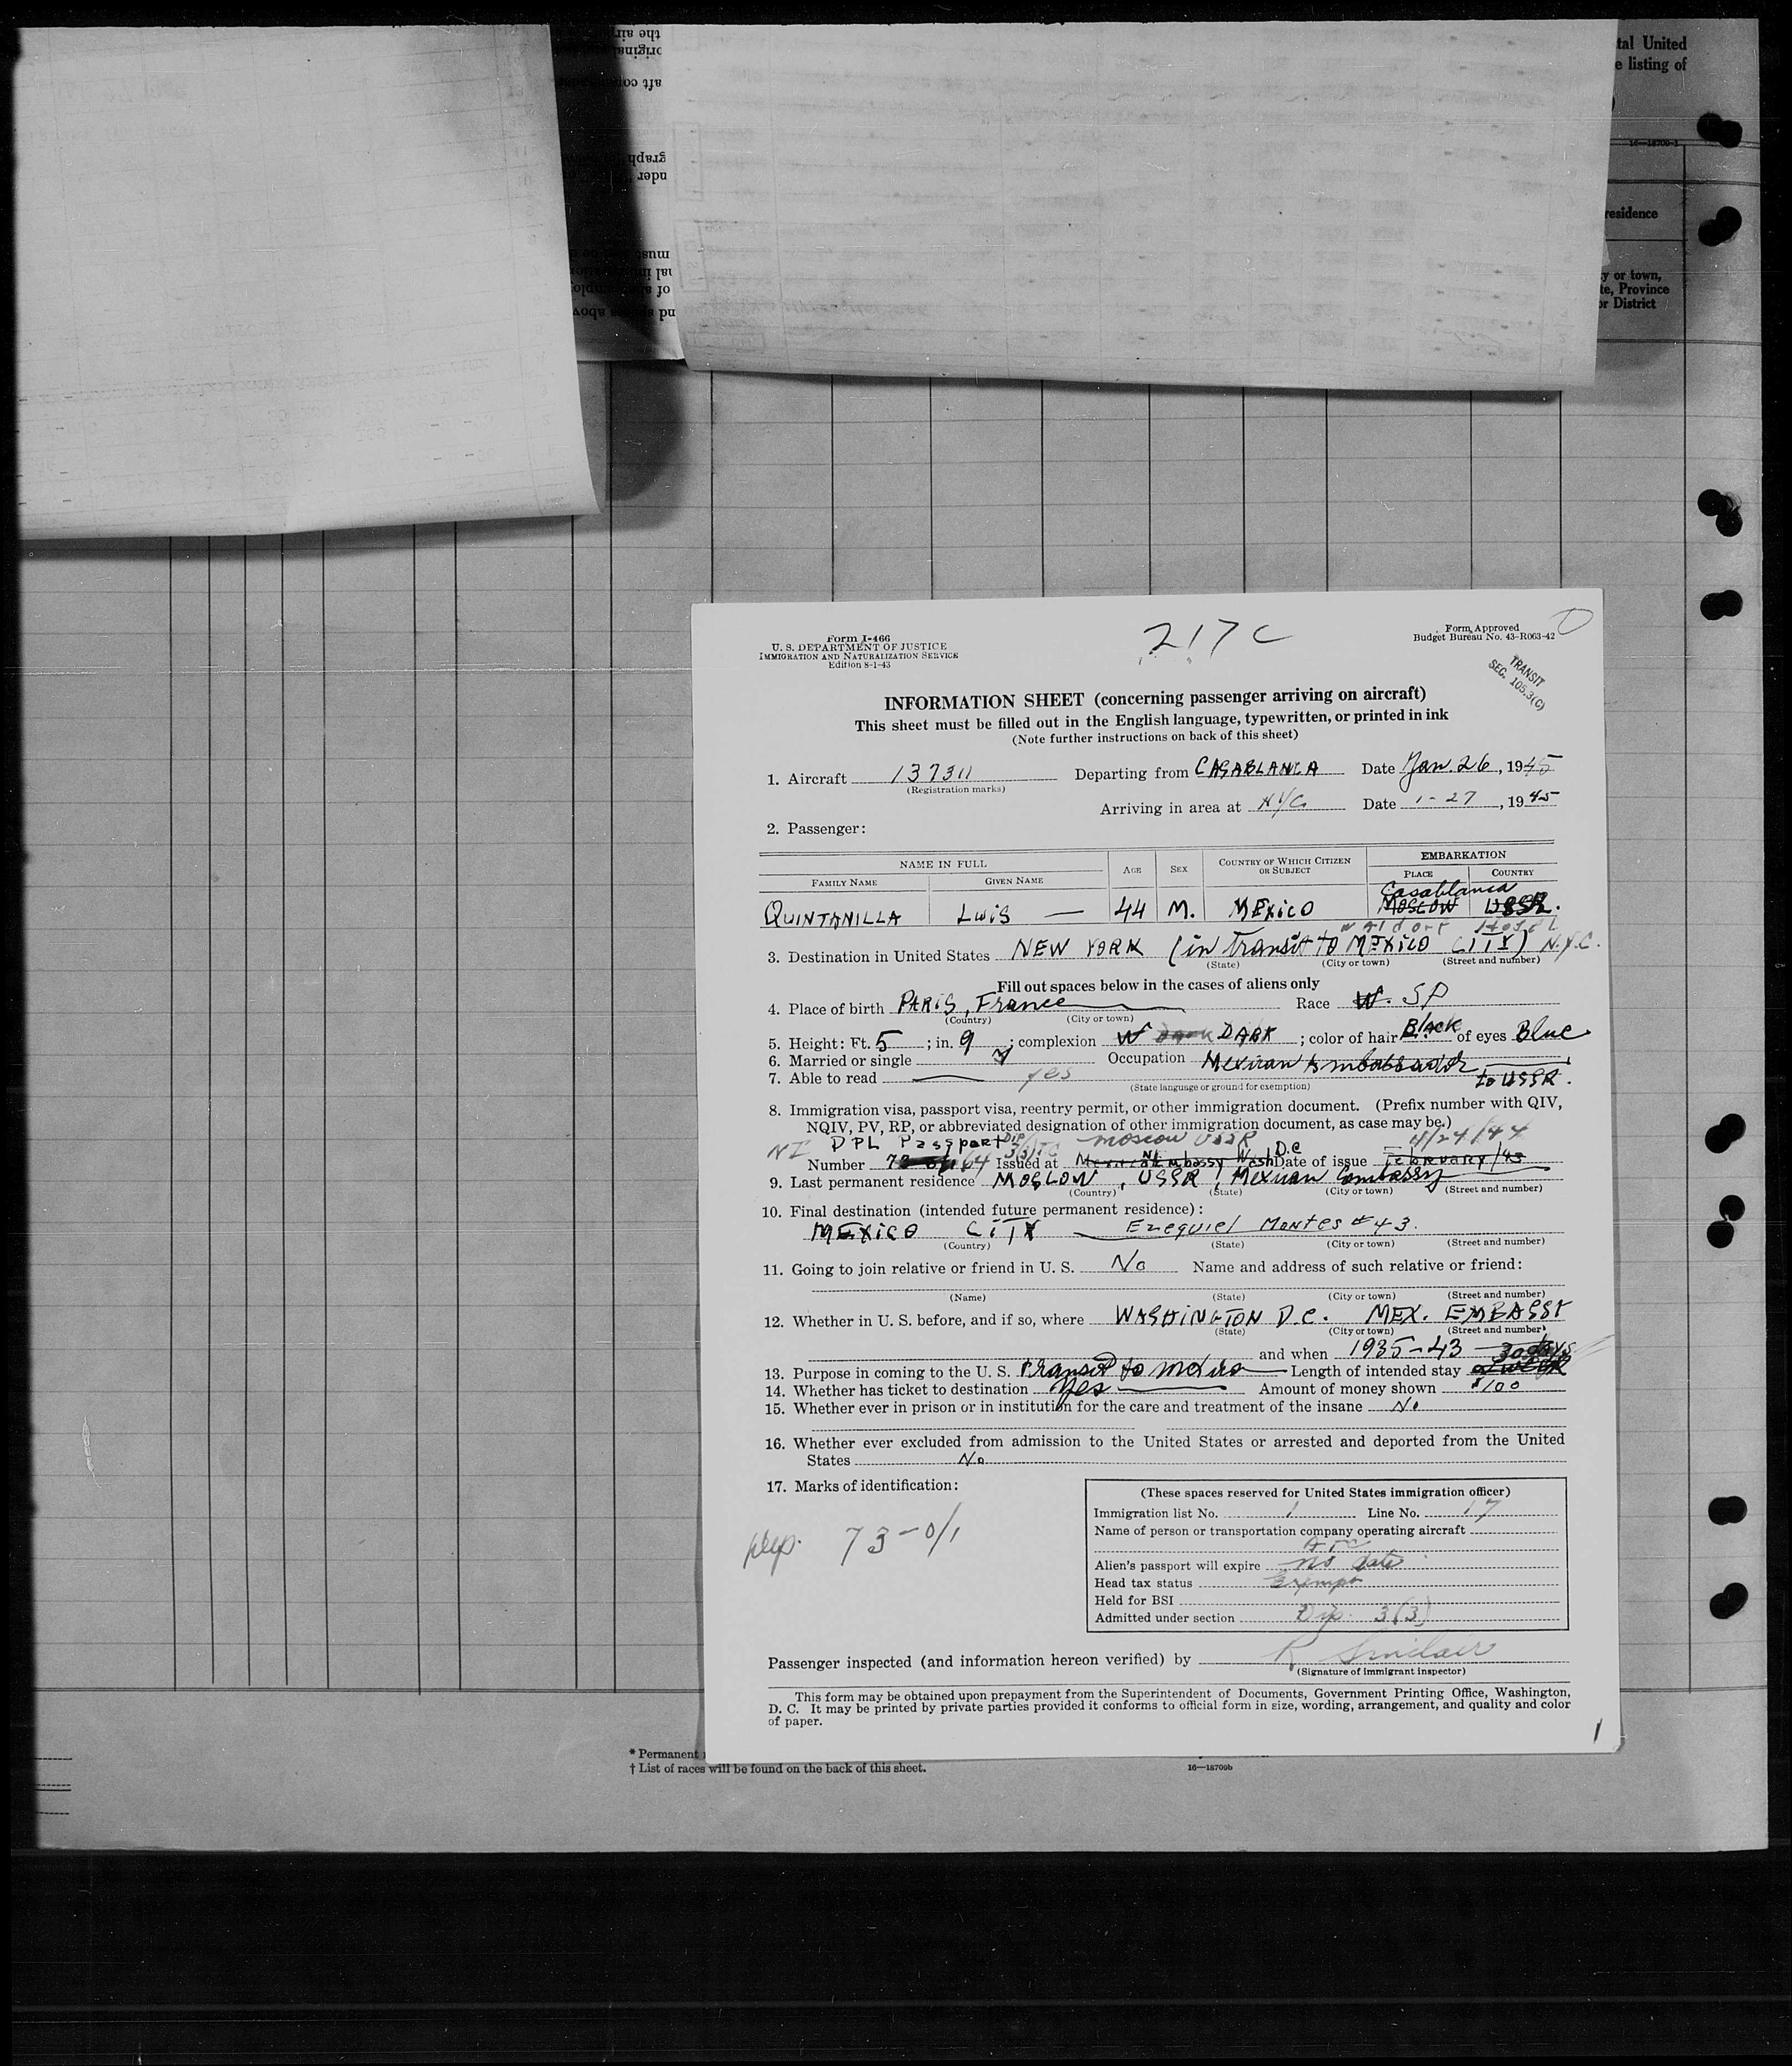 tal United
e listing of
16—18709-1
residence
y or town,
te, Province
or District
the air
original
aft
graph
nder
must
nal
of
nd spaces above
217 C
Form I-466
U. S. DEPARTMENT OF JUSTICE
IMMIGRATION AND NATURALIZATION SERVICE
Edition 8-1-43
Form Approved
Budget Bureau No. 43-R063-42
TRANSIT
SEC. 105.3(C)
INFORMATION SHEET (concerning passenger arriving on aircraft)
This sheet must be filled out in the English language, typewritten, or printed in ink
(Note further instructions on back of this sheet)
1. Aircraft 137311 Departing from CASABLANCA Date Jan. 26, 1945
(Registration marks)
Arriving in area at NYC Date 1-27, 1945
2. Passenger:
NAME IN FULL AGE SEX COUNTRY OF WHICH CITIZEN OR SUBJECT EMBARKATION
FAMILY NAME GIVEN NAME PLACE COUNTRY
Casablanca
QUINTANILLA LUIS — 44 M. MEXICO MOSCOW USSR.
Waldorf Hotel
3. Destination in United States NEW YORK (in transit to MEXICO CITY) N.Y.C.
(State) (City or town) (Street and number)
Fill out spaces below in the cases of aliens only
4. Place of birth PARIS, France Race W. SP
(Country) (City or town)
5. Height: Ft. 5; in. 9; complexion W DARK; color of hair Black of eyes Blue
6. Married or single Occupation Mexican Ambassador
7. Able to read yes to USSR.
(State language or ground for exemption)
8. Immigration visa, passport visa, reentry permit, or other immigration document. (Prefix number with QIV,
NQIV, PV, RP, or abbreviated designation of other immigration document, as case may be.)
NI DPL Passport Moscow USSR 4/24/44
Number 64 Issued at Mexican Embassy Wash D.C Date of issue February/43
9. Last permanent residence MOSCOW, USSR, Mexican Embassy
(Country) (State) (City or town) (Street and number)
10. Final destination (intended future permanent residence):
MEXICO CITY Ezequiel Montes #43.
(Country) (State) (City or town) (Street and number)
11. Going to join relative or friend in U. S. No Name and address of such relative or friend:
(Name) (State) (City or town) (Street and number)
12. Whether in U. S. before, and if so, where WASHINGTON D.C. MEX. EMBASSY
(State) (City or town) (Street and number)
and when 1935-43 30 days
13. Purpose in coming to the U. S. transit to Mexico Length of intended stay
14. Whether has ticket to destination Yes Amount of money shown $100
15. Whether ever in prison or in institution for the care and treatment of the insane No
16. Whether ever excluded from admission to the United States or arrested and deported from the United
States No
17. Marks of identification:
73-0/1
(These spaces reserved for United States immigration officer)
Immigration list No. 1 Line No. 17
Name of person or transportation company operating aircraft
ATC
Alien's passport will expire no date
Head tax status Exempt
Held for BSI
Admitted under section Dip. 3(3)
Passenger inspected (and information hereon verified) by R Sinclair
(Signature of immigrant inspector)
This form may be obtained upon prepayment from the Superintendent of Documents, Government Printing Office, Washington,
D. C. It may be printed by private parties provided it conforms to official form in size, wording, arrangement, and quality and color
of paper.
1
* Permanent
† List of races will be found on the back of this sheet.
16—18709b